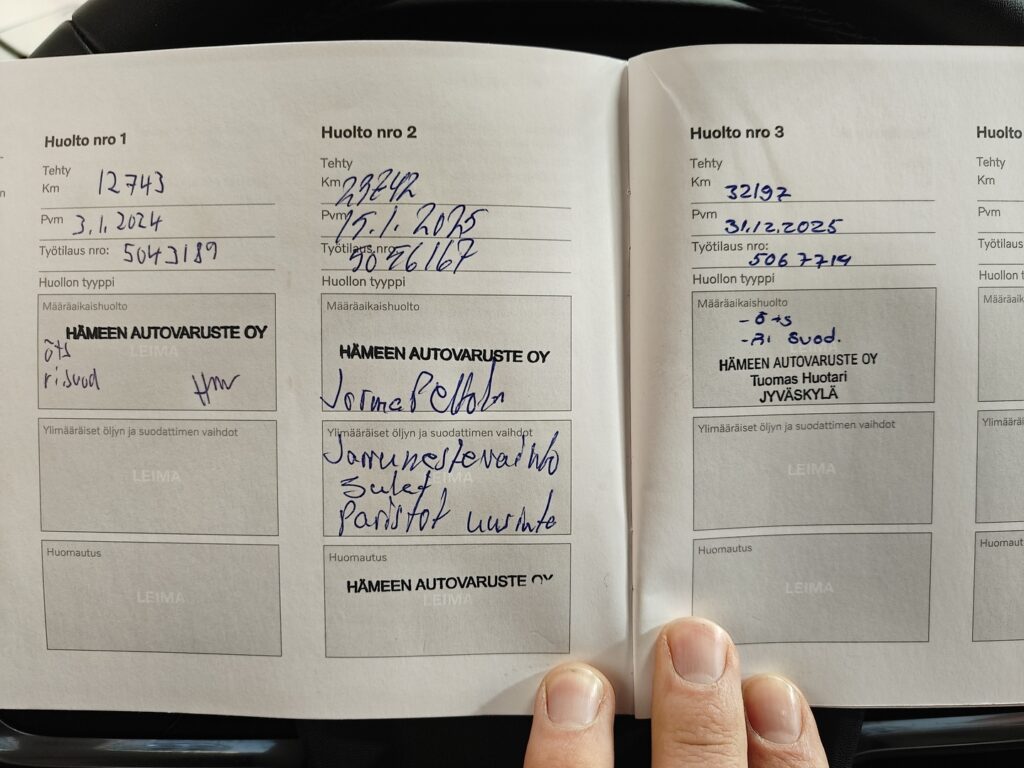 Huolto nro 1
Tehty
Km 12743
Pvm 3.1.2024
Työtilaus nro: 5043189
Huollon tyyppi
Määräaikaishuolto
HÄMEEN AUTOVARUSTE OY
LEIMA
öts
ri suod
Ylimääräiset öljyn ja suodattimen vaihdot
LEIMA
Huomautus
LEIMA
Huolto nro 2
Tehty
Km 23742
Pvm 15.1.2025
Työtilaus nro:
Huollon tyyppi
Määräaikaishuolto
HÄMEEN AUTOVARUSTE OY
Jorma
Ylimääräiset öljyn ja suodattimen vaihdot
Jarrunestevaihto
Sulat
Paristot uusinta
Huomautus
HÄMEEN AUTOVARUSTE OY
LEIMA
Huolto nro 3
Tehty
Km 32197
Pvm 31.12.2025
Työtilaus nro: 5067714
Huollon tyyppi
Määräaikaishuolto
- öts
- Ri suod.
HÄMEEN AUTOVARUSTE OY
Tuomas Huotari
JYVÄSKYLÄ
Ylimääräiset öljyn ja suodattimen vaihdot
LEIMA
Huomautus
LEIMA
Huolto
Tehty
Km
Pvm
Työtilaus
Huollon